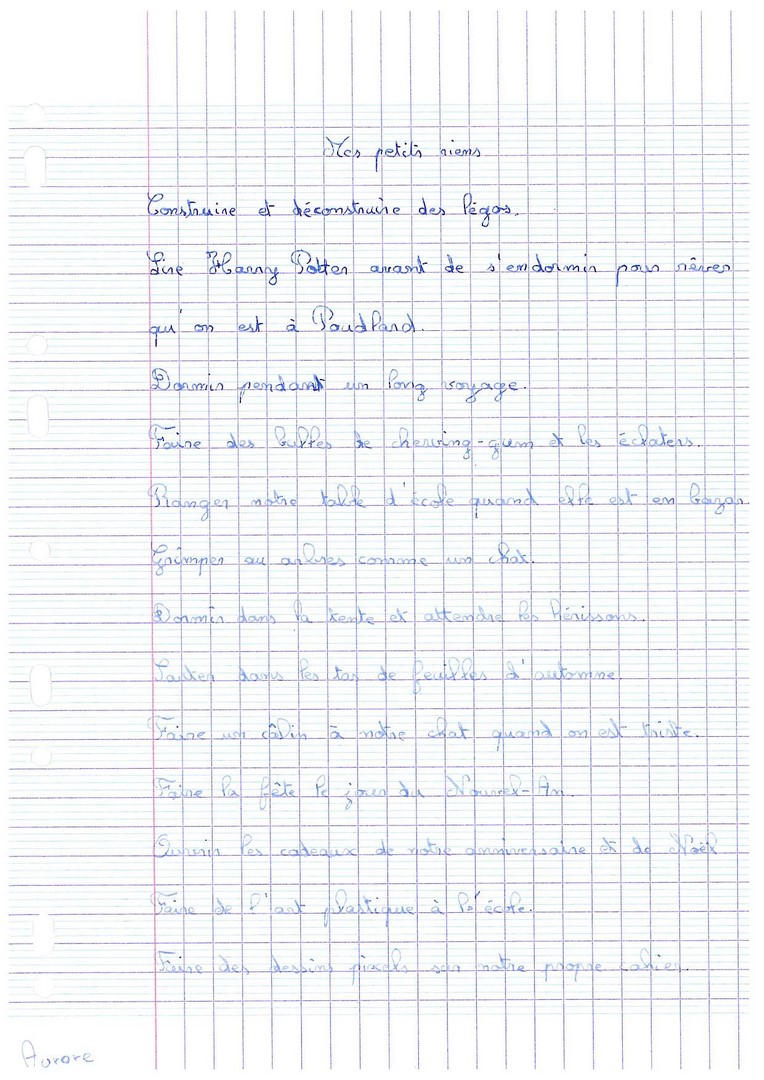 Mes petits riens
Construire et déconstruire des légos.
Lire Harry Potter avant de s'endormir pour rêver
qu'on est à Poudlard.
Dormir pendant un long voyage.
Faire des bulles de chewing-gum et les éclaters.
Ranger notre table d'école quand elle est en bazar
Grimper au arbres comme un chat.
Dormir dans la tente et attendre les hérissons.
Sauter dans les tas de feuilles d'automne.
Faire un câlin à notre chat quand on est triste.
Faire la fête le jour du Nouvel-An.
Ouvrir les cadeaux de notre anniversaire et de Noël
Faire de l'art plastique à l'école.
Faire des dessins pixels sur notre propre cahier.
Aurore